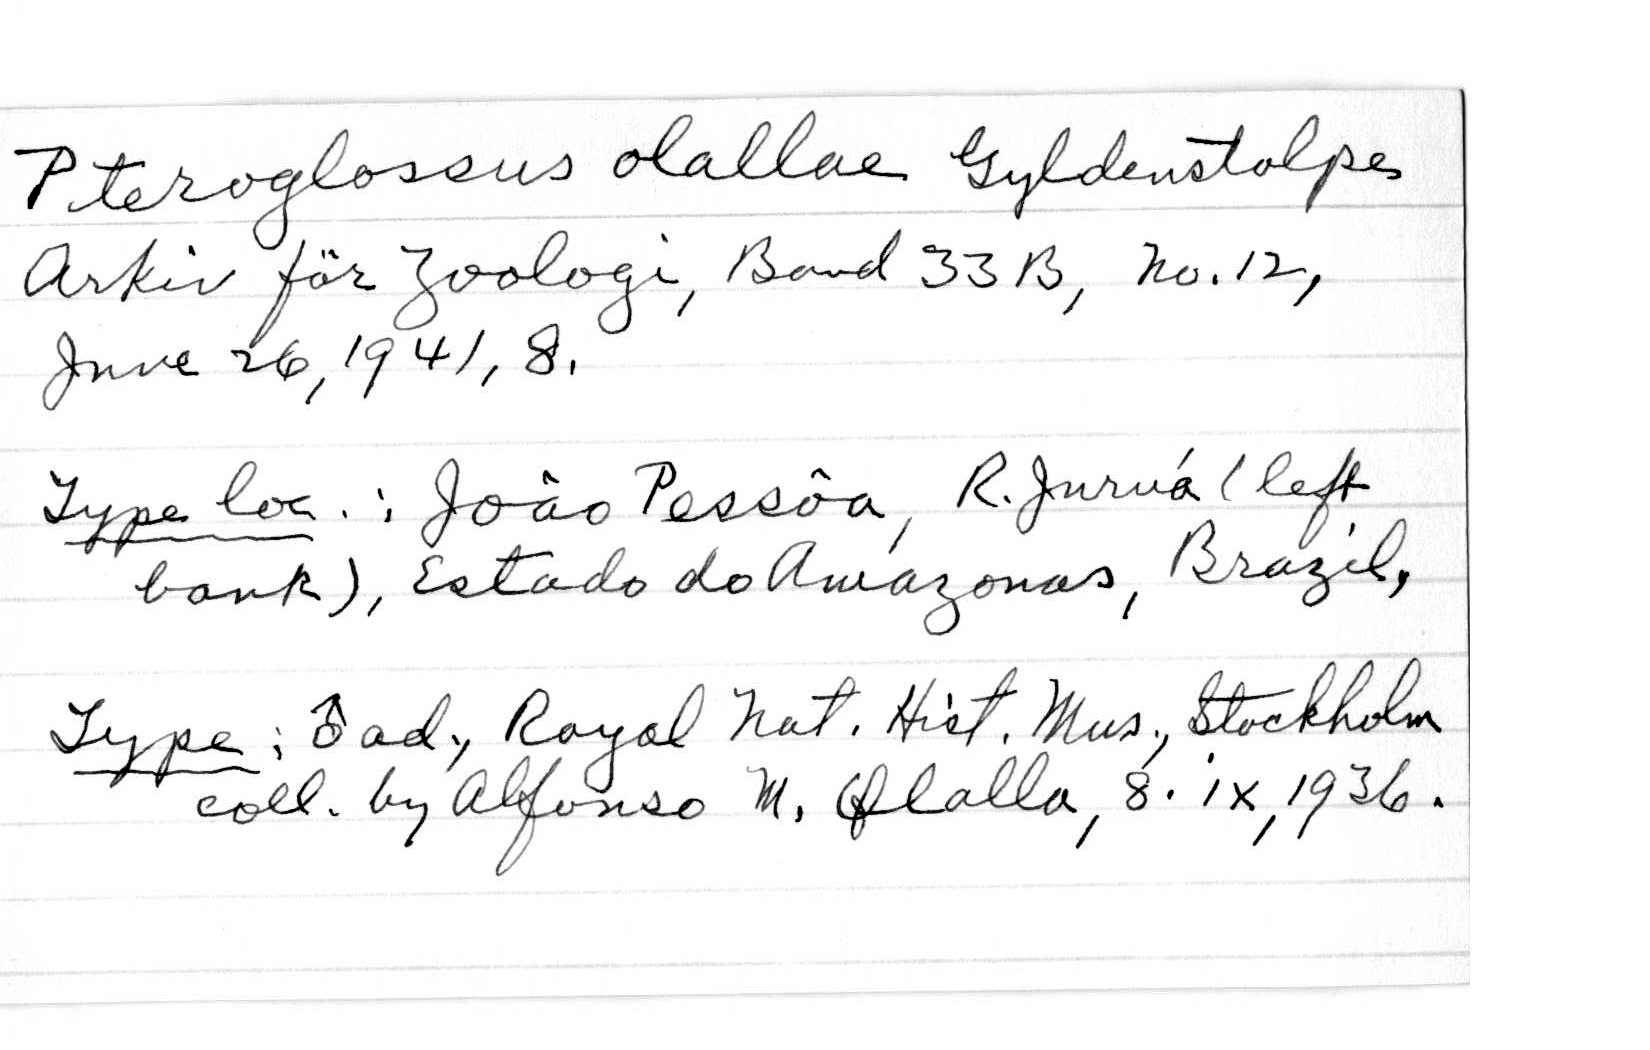 Pteroglossus olallae Gyldenstolpe
Arkiv för Zoologi, Band 33B, No. 12,
June 26, 1941, 8.
Type loc.: João Pessôa, R. Juruá (left
bank), Estado do Amazonas, Brazil,
Type: ♂ ad., Royal Nat. Hist. Mus., Stockholm
coll. by Alfonso M. Olalla, 8. ix, 1936.